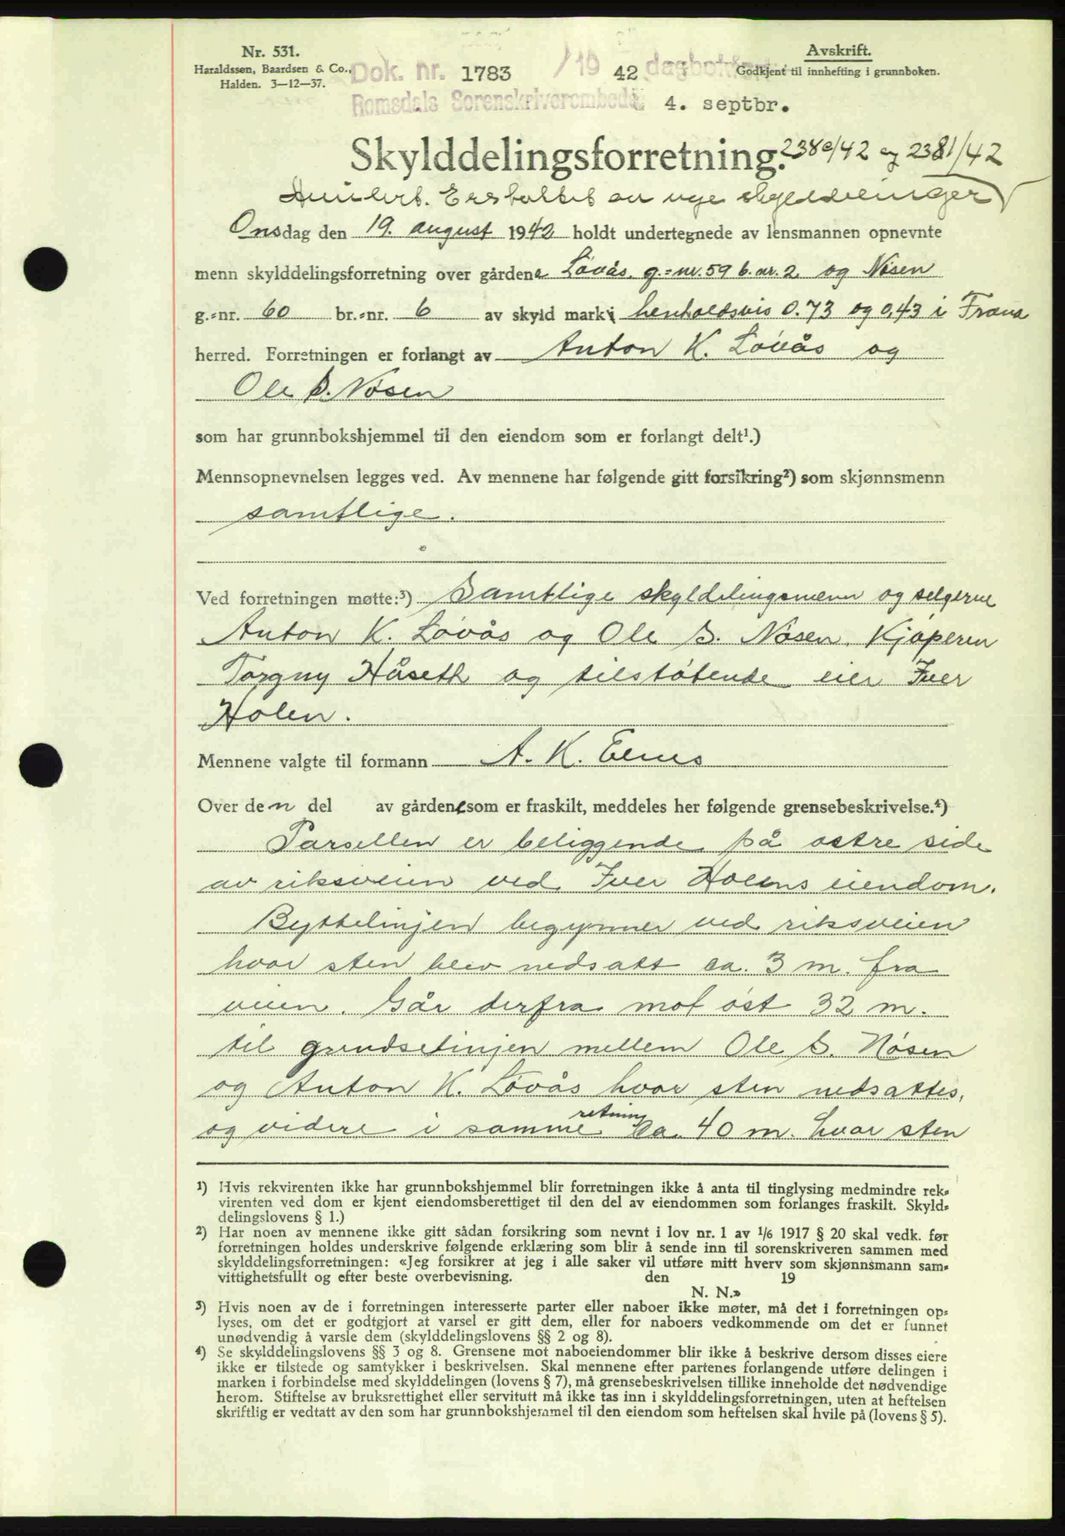 Nr. 531.
Haraldssen, Baardsen & Co.,
Halden. 3-12-37.
Avskrift.
Godkjent til innhefting i grunnboken.
Dok. nr. 1783 /19 42 dagbok
Romsdals Sorenskriverembede 4. septbr.
Skylddelingsforretning. 2380/42 og 2381/42
Annullert. Erstattet av nye skylddelinger
Onsdag den 19. august 1942 holdt undertegnede av lensmannen opnevnte
menn skylddelingsforretning over gårdene Løvås g.=nr. 59 b.nr. 2 og Nøsen
g.=nr. 60 br.=nr. 6 av skyld mark henholdsvis 0.73 og 0,43 i Fræna
herred. Forretningen er forlangt av Anton K. Løvås og
Ole S. Nøsen
som har grunnbokshjemmel til den eiendom som er forlangt delt¹.)
Mennsopnevnelsen legges ved. Av mennene har følgende gitt forsikring²) som skjønnsmenn
samtlige.
Ved forretningen møtte:³) Samtlige skyldelingsmenn og selgerne
Anton K. Løvås og Ole S. Nøsen. Kjøperen
Torgny Håseth og tilstøtende eier Iver
Holen.
Mennene valgte til formann A. K. Elnes
Over den del av gårdene som er fraskilt, meddeles her følgende grensebeskrivelse.⁴)
Parsellen er beliggende på østre side
av riksveien ved Iver Holens eiendom.
Byttelinjen begynner ved riksveien
hvor sten blev nedsatt ca. 3 m. fra
veien. Går derfra mot øst 32 m.
til grendselinjen mellem Ole S. Nøsen
og Anton K. Løvås hvor sten nedsattes,
og videre i samme retning ca. 40 m. hvor sten
¹) Hvis rekvirenten ikke har grunnbokshjemmel blir forretningen ikke å anta til tinglysing medmindre rek=
virenten ved dom er kjent eiendomsberettiget til den del av eiendommen som forlanges fraskilt. Skyld=
delingslovens § 1.)
²) Har noen av mennene ikke gitt sådan forsikring som nevnt i lov nr. 1 av 1/6 1917 § 20 skal vedk. før
forretningen holdes underskrive følgende erklæring som blir å sende inn til sorenskriveren sammen med
skylddelingsforretningen: «Jeg forsikrer at jeg i alle saker vil utføre mitt hverv som skjønnsmann sam=
vittighetsfullt og efter beste overbevisning. den 19
N. N.»
³) Hvis noen av de i forretningen interesserte parter eller naboer ikke møter, må det i forretningen op=
lyses, om det er godtgjort at varsel er gitt dem, eller for naboers vedkommende om det er funnet
unødvendig å varsle dem (skylddelingslovens §§ 2 og 8).
⁴) Se skylddelingslovens §§ 3 og 8. Grensene mot naboeiendommer blir ikke å beskrive dersom disses eiere
ikke er tilstede og samtykker i beskrivelsen. Skal mennene efter partenes forlangende utføre delingen i
marken i forbindelse med skylddelingen (lovens § 7), må grensebeskrivelsen tillike inneholde det nødvendige
herom. Stiftelse av bruksrettighet eller servitutt må ikke tas inn i skylddelingsforretningen, uten at heftelsen
skriftlig er vedtatt av den som har grunnbokshjemmel til den eiendom som heftelsen skal hvile på (lovens § 5).